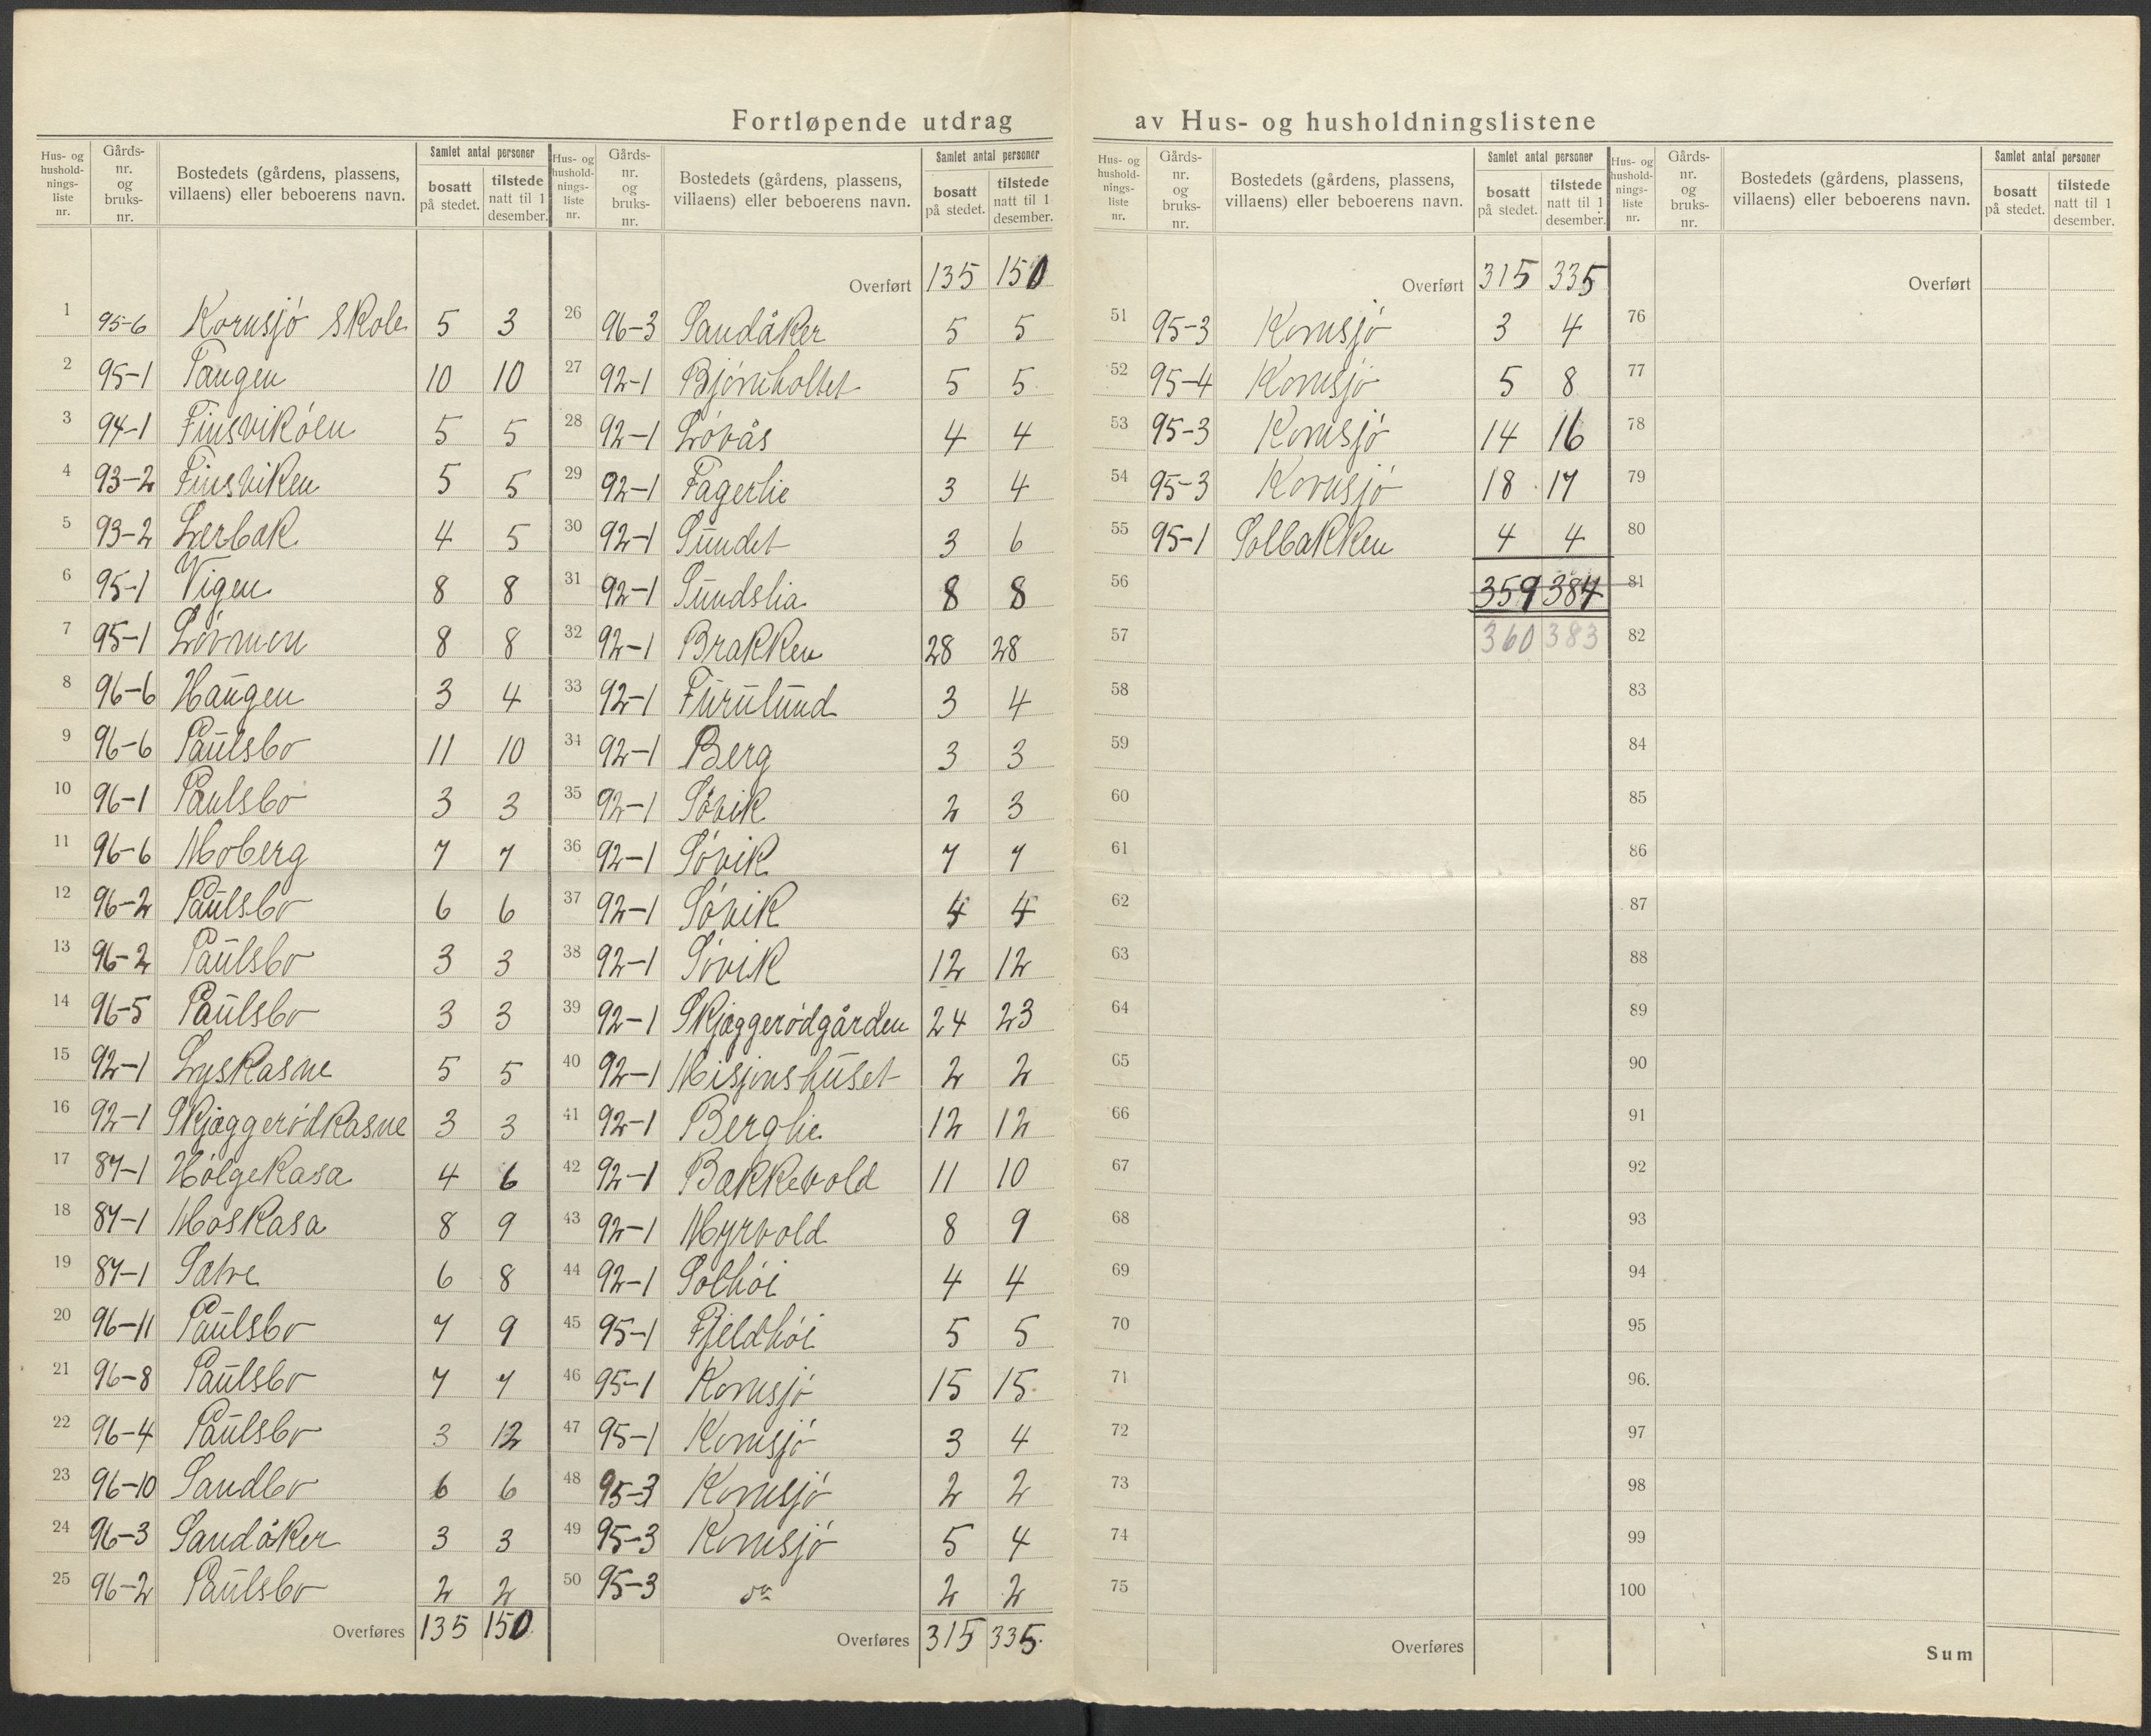 Fortløpende utdrag av Hus- og husholdningslistene
Hus- og husholdnings-liste nr. | Gårds-nr. og bruks-nr. | Bostedets (gårdens, plassens, villaens) eller beboerens navn. | Samlet antal personer | bosatt på stedet. | tilstede natt til 1 desember.
1 95-6 Kornsjø skole 5 3
2 95-1 Tangen 10 10
3 94-1 Finsvikøen 5 5
4 93-2 Finsviken 5 5
5 93-2 Lerbak 4 5
6 95-1 Vigen 8 8
7 95-1 Løvmon 8 8
8 96-6 Haugen 3 4
9 96-6 Paulsbo 11 10
10 96-1 Paulsbo 3 3
11 96-6 Moberg 7 7
12 96-2 Paulsbo 6 6
13 96-2 Paulsbo 3 3
14 96-5 Paulsbo 3 3
15 92-1 Lyskasne 5 5
16 92-1 Skjæggerødkasne 3 3
17 87-1 Hølgekasa 4 6
18 87-1 Moskasa 8 9
19 87-1 6 8
20 96-11 Paulsbo 7 9
21 96-8 Paulsbo 7 7
22 96-4 Paulsbo 3 12
23 96-10 Sandbo 6 6
24 96-3 Sandåker 3 3
25 96-2 Paulsbo 2 2
Overføres 135 150
Hus- og husholdnings-liste nr. | Gårds-nr. og bruks-nr. | Bostedets (gårdens, plassens, villaens) eller beboerens navn. | Samlet antal personer | bosatt på stedet. | tilstede natt til 1 desember.
Overført 135 150
26 96-3 Sandåker 5 5
27 92-1 Bjørnholtet 5 5
28 92-1 Løvås 4 4
29 92-1 Fagerlie 3 4
30 92-1 Sundet 3 6
31 92-1 Sundslia 8 8
32 92-1 Brakken 28 28
33 92-1 Furulund 3 4
34 92-1 Berg 3 3
35 92-1 Søvik 2 3
36 92-1 Søvik 7 7
37 92-1 Søvik 4 4
38 92-1 Søvik 12 12
39 92-1 Skjæggerødgården 24 23
40 92-1 Misjonshuset 2 2
41 92-1 Berglie 12 12
42 92-1 Bakkevold 11 10
43 92-1 Myrvold 8 9
44 92-1 Solhøi 4 4
45 95-1 Fjeldhøi 5 5
46 95-1 Kornsjø 15 15
47 95-1 Kornsjø 3 4
48 95-3 Kornsjø 2 2
49 95-3 Kornsjø 5 4
50 95-3 do 2 2
Overføres 315 335
Hus- og husholdnings-liste nr. | Gårds-nr. og bruks-nr. | Bostedets (gårdens, plassens, villaens) eller beboerens navn. | Samlet antal personer | bosatt på stedet. | tilstede natt til 1 desember.
Overført 315 335
51 95-3 Kornsjø 3 4
52 95-4 Kornsjø 5 8
53 95-3 Kornsjø 14 16
54 95-3 Kornsjø 18 17
55 95-1 Solbakken 4 4
56 359 384
57 360 383
58
59
60
61
62
63
64
65
66
67
68
69
70
71
72
73
74
75
Overføres
Hus- og husholdnings-liste nr. | Gårds-nr. og bruks-nr. | Bostedets (gårdens, plassens, villaens) eller beboerens navn. | Samlet antal personer | bosatt på stedet. | tilstede natt til 1 desember.
Overført
76
77
78
79
80
81
82
83
84
85
86
87
88
89
90
91
92
93
94
95
96.
97
98
99
100
Sum